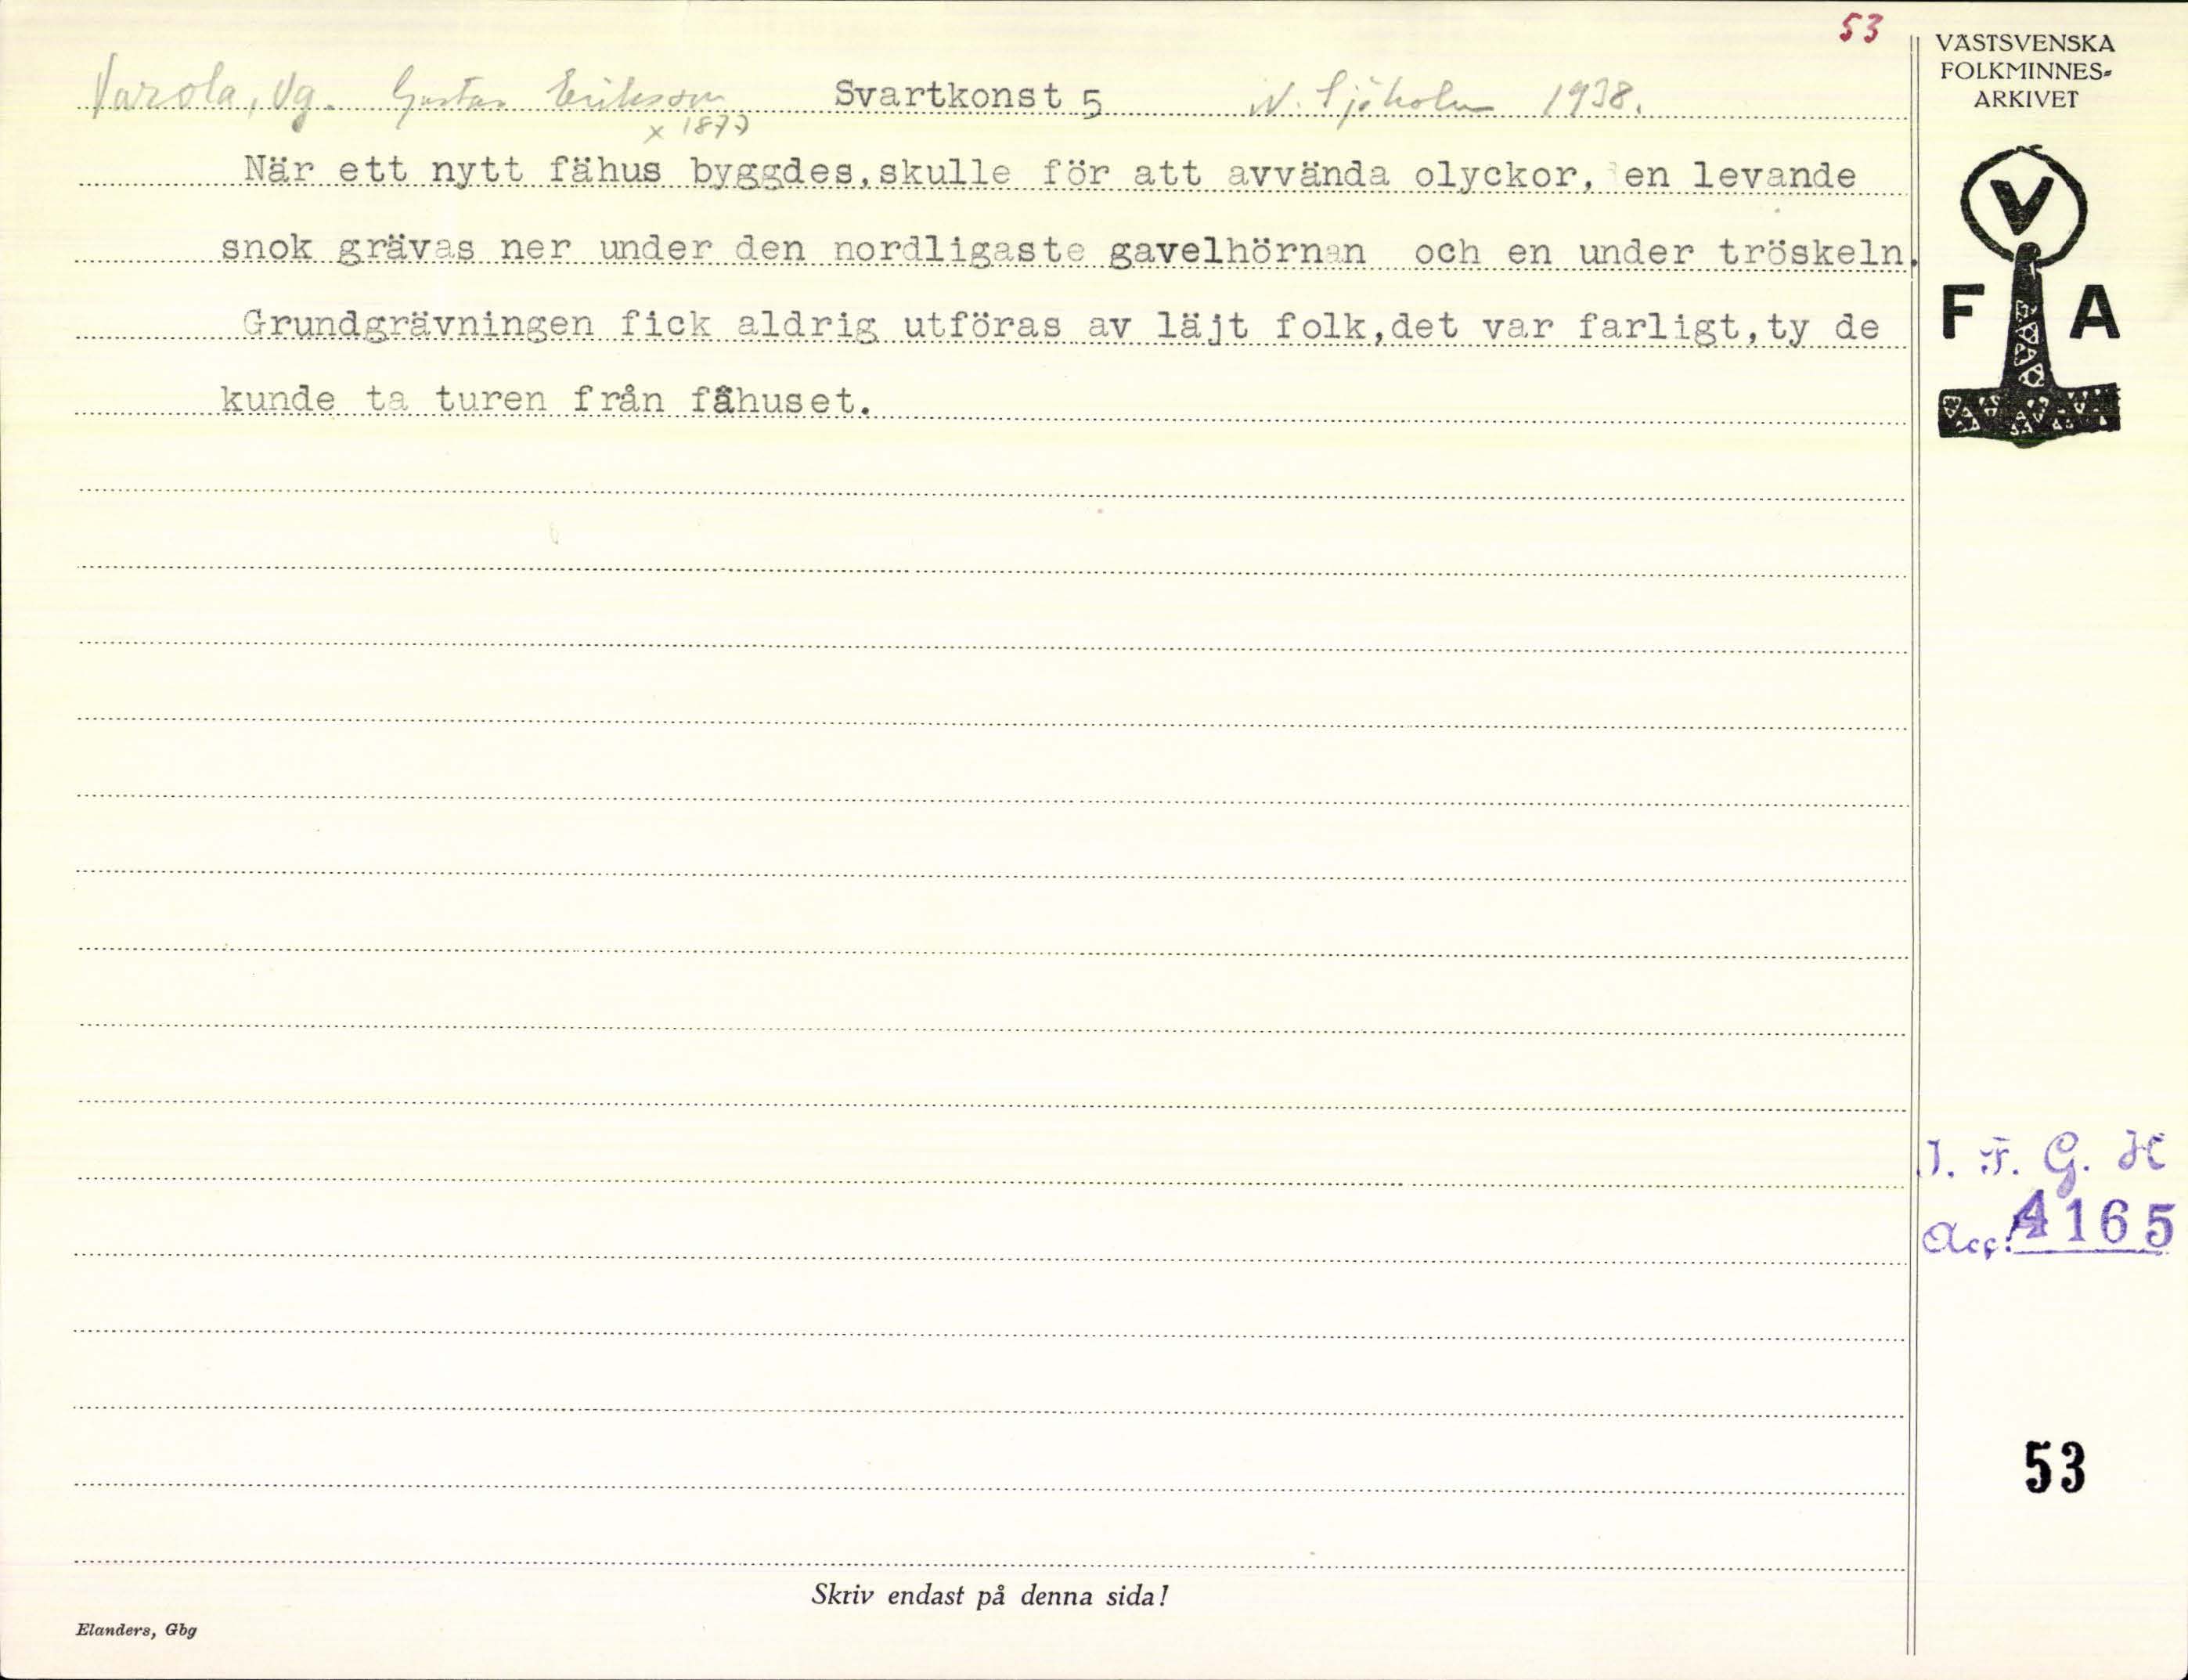 53
Varola, Vg. Gustav Eriksson Svartkonst 5 N. Sjöholm 1938.
x 1873
När ett nytt fähus byggdes,skulle för att avvända olyckor, en levande
snok grävas ner under den nordligaste gavelhörnan och en under tröskeln.
Grundgrävningen fick aldrig utföras av läjt folk,det var farligt,ty de
kunde ta turen från fähuset.
VÄSTSVENSKA
FOLKMINNES-
ARKIVET
V
F A
I. F. G. H
Acc: 4165
53
Skriv endast på denna sida!
Elanders, Gbg